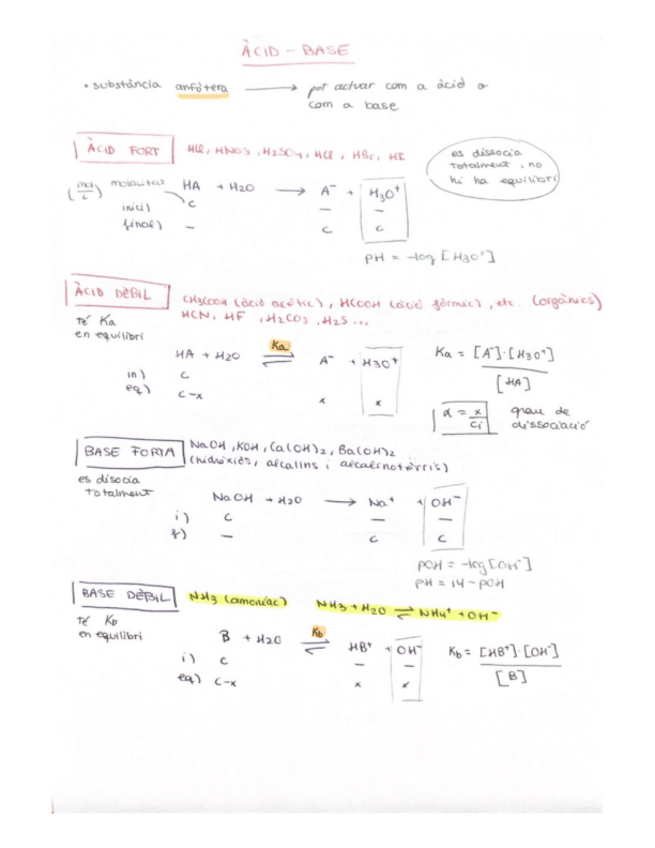 ÀCID - BASE
• substància anfòtera → pot actuar com a àcid o
com a base
ÀCID FORT HCl, HNO3, H2SO4, HCl, HBr, HI
es dissocia
totalment, no
hi ha equilibri
(mol/L) molaritat HA + H2O → A⁻ + H3O⁺
inicial) c — —
final) — c c
PH = -log [H3O⁺]
ÀCID DÈBIL CH3COOH (àcid acètic), HCOOH (àcid fòrmic), etc. (orgànics)
HCN, HF, H2CO3, H2S...
té Ka
en equilibri
HA + H2O ⇌ A⁻ + H3O⁺
Ka
in) c
eq) c-x x x
Ka = [A⁻]·[H3O⁺] / [HA]
α = x / ci grau de
dissociació
BASE FORTA NaOH, KOH, Ca(OH)2, Ba(OH)2
(hidròxids, alcalins i alcalinotèrris)
es disocia
totalment
NaOH + H2O → Na⁺ + OH⁻
i) c — —
f) — c c
pOH = -log[OH⁻]
PH = 14 - POH
BASE DÈBIL NH3 (amoníac) NH3 + H2O ⇌ NH4⁺ + OH⁻
té Kb
en equilibri
B + H2O ⇌ HB⁺ + OH⁻
Kb
i) c — —
eq) c-x x x
Kb = [HB⁺]·[OH⁻] / [B]